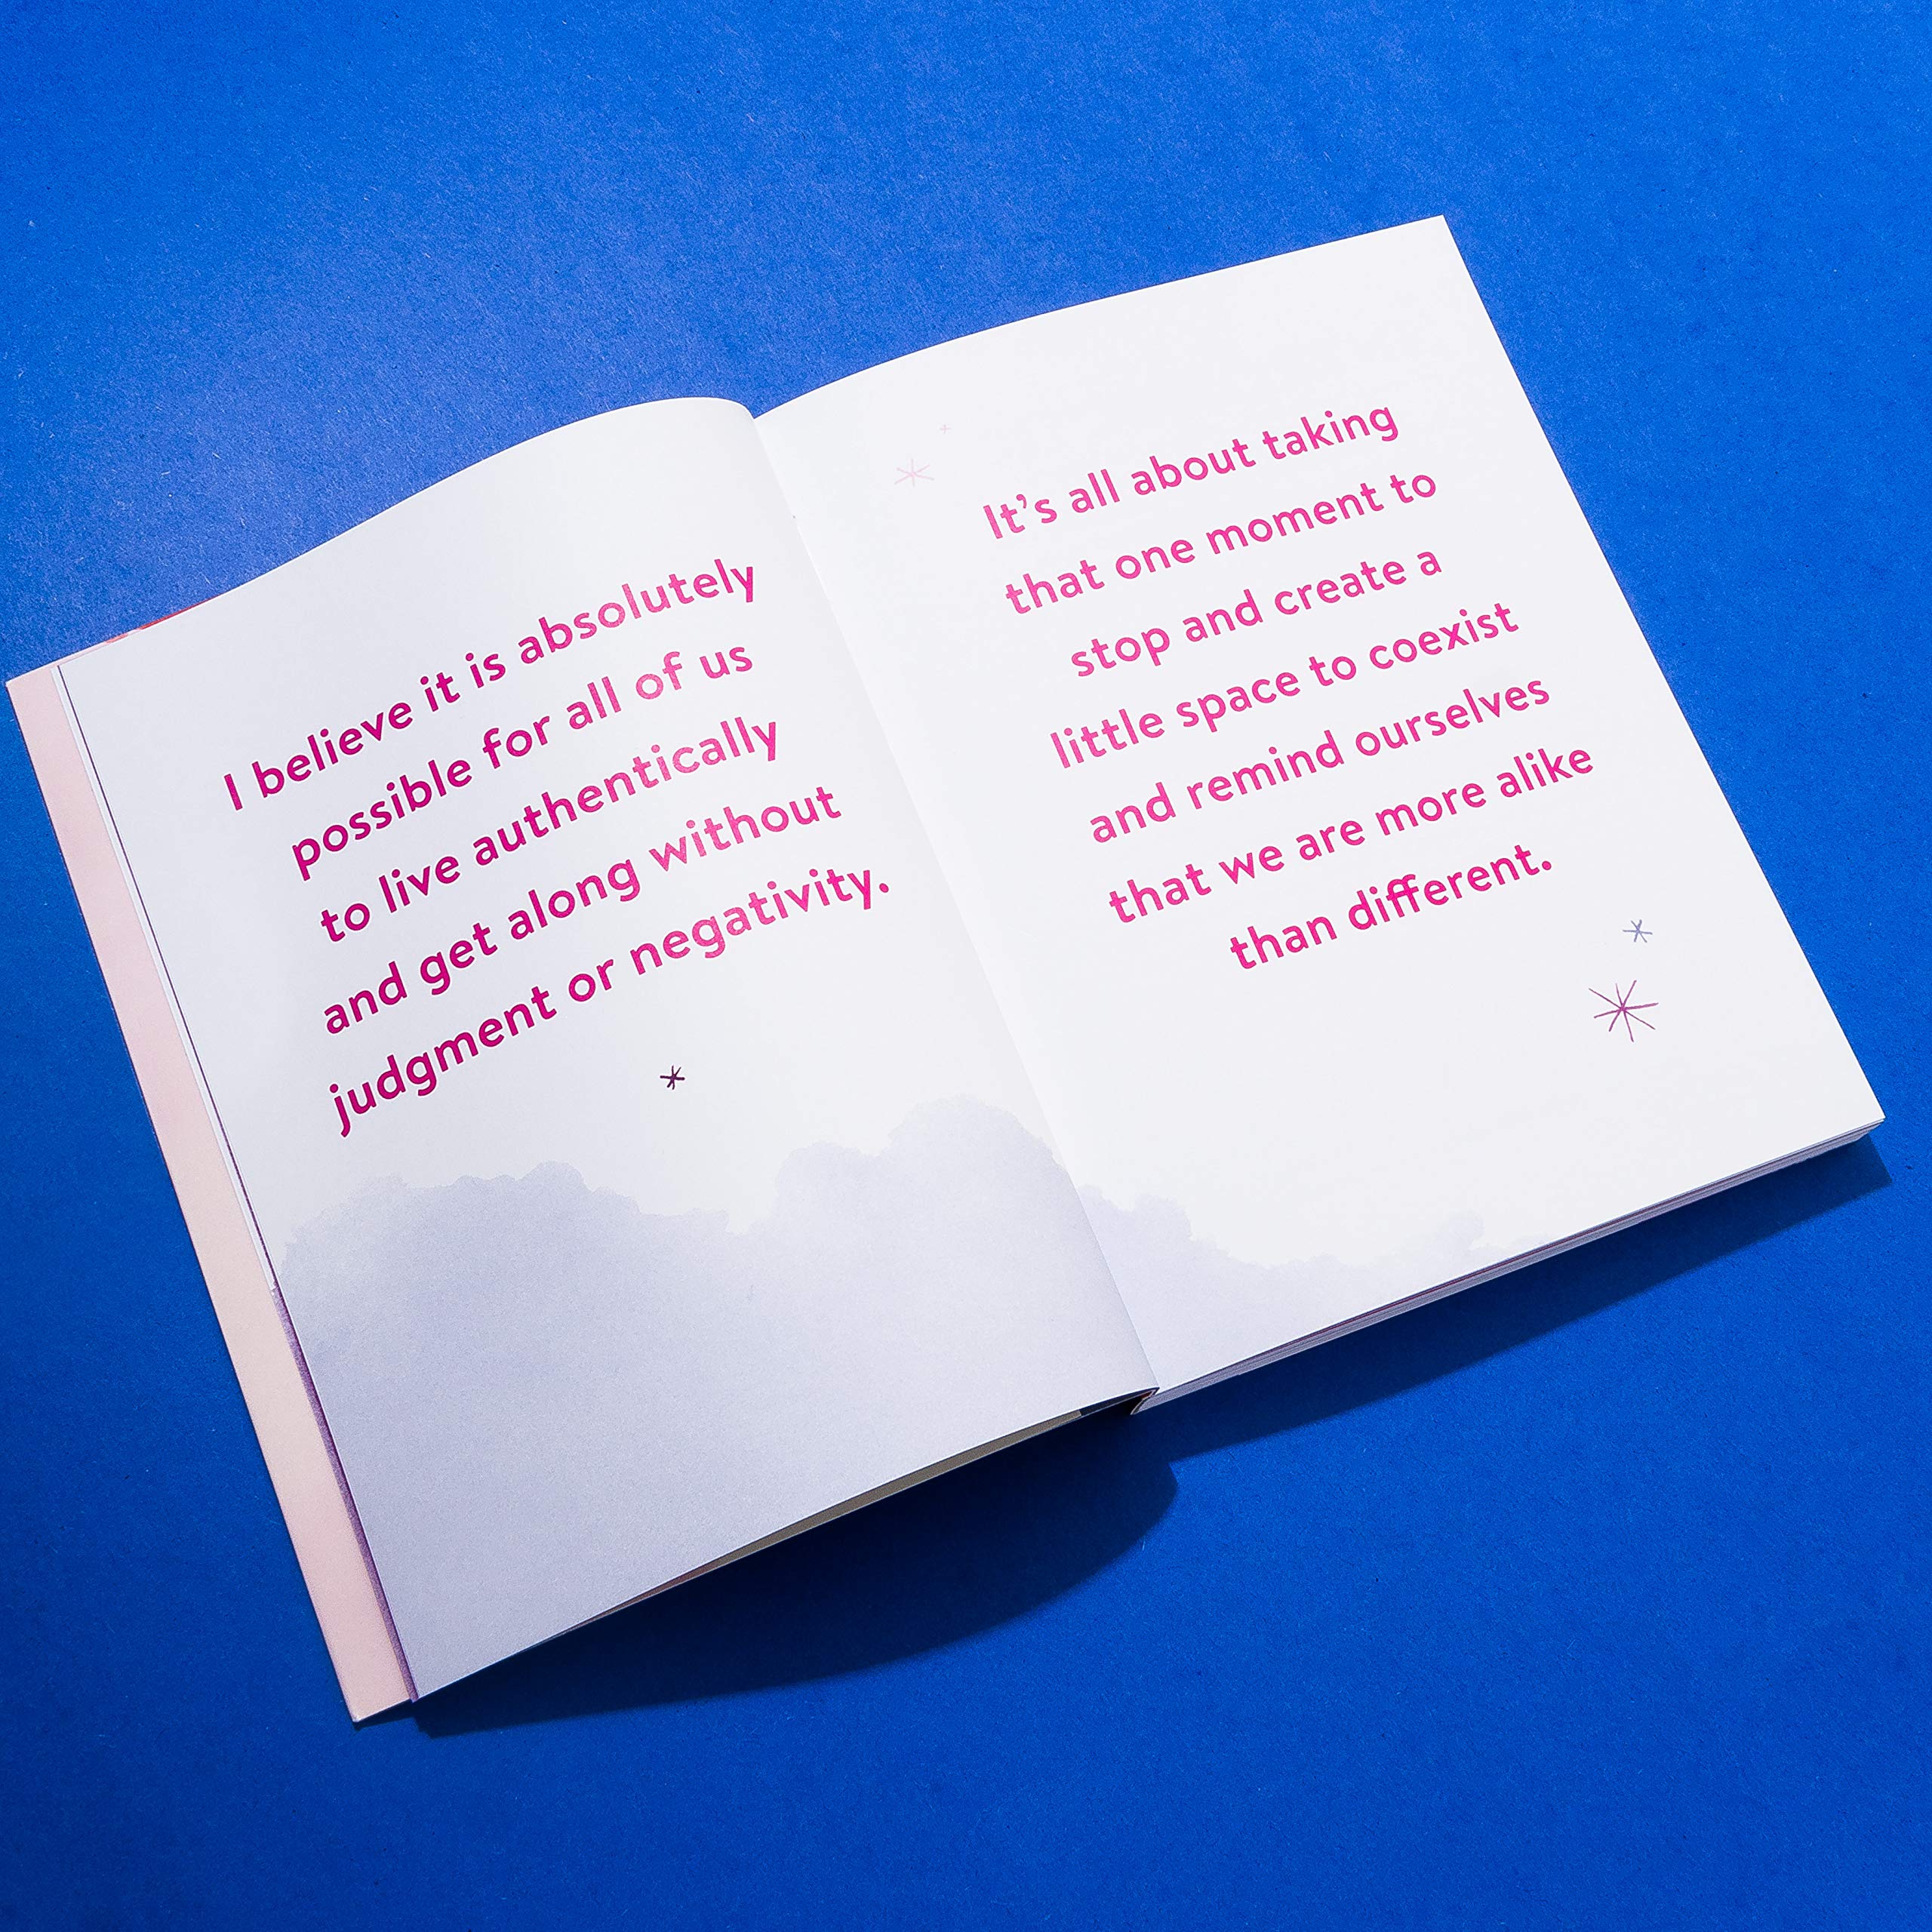 I believe it is absolutely
possible for all of us
to live authentically
and get along without
judgment or negativity.
It’s all about taking
that one moment to
stop and create a
little space to coexist
and remind ourselves
that we are more alike
than different.